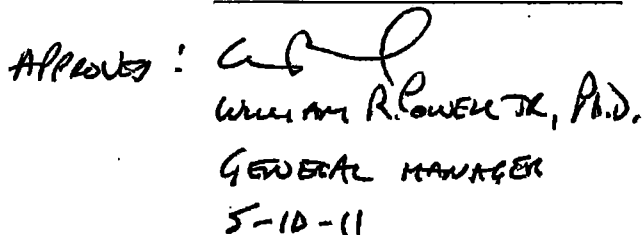 APPROVED:
WILLIAM R. POWELL JR, Ph.D.
GENERAL MANAGER
5-10-11